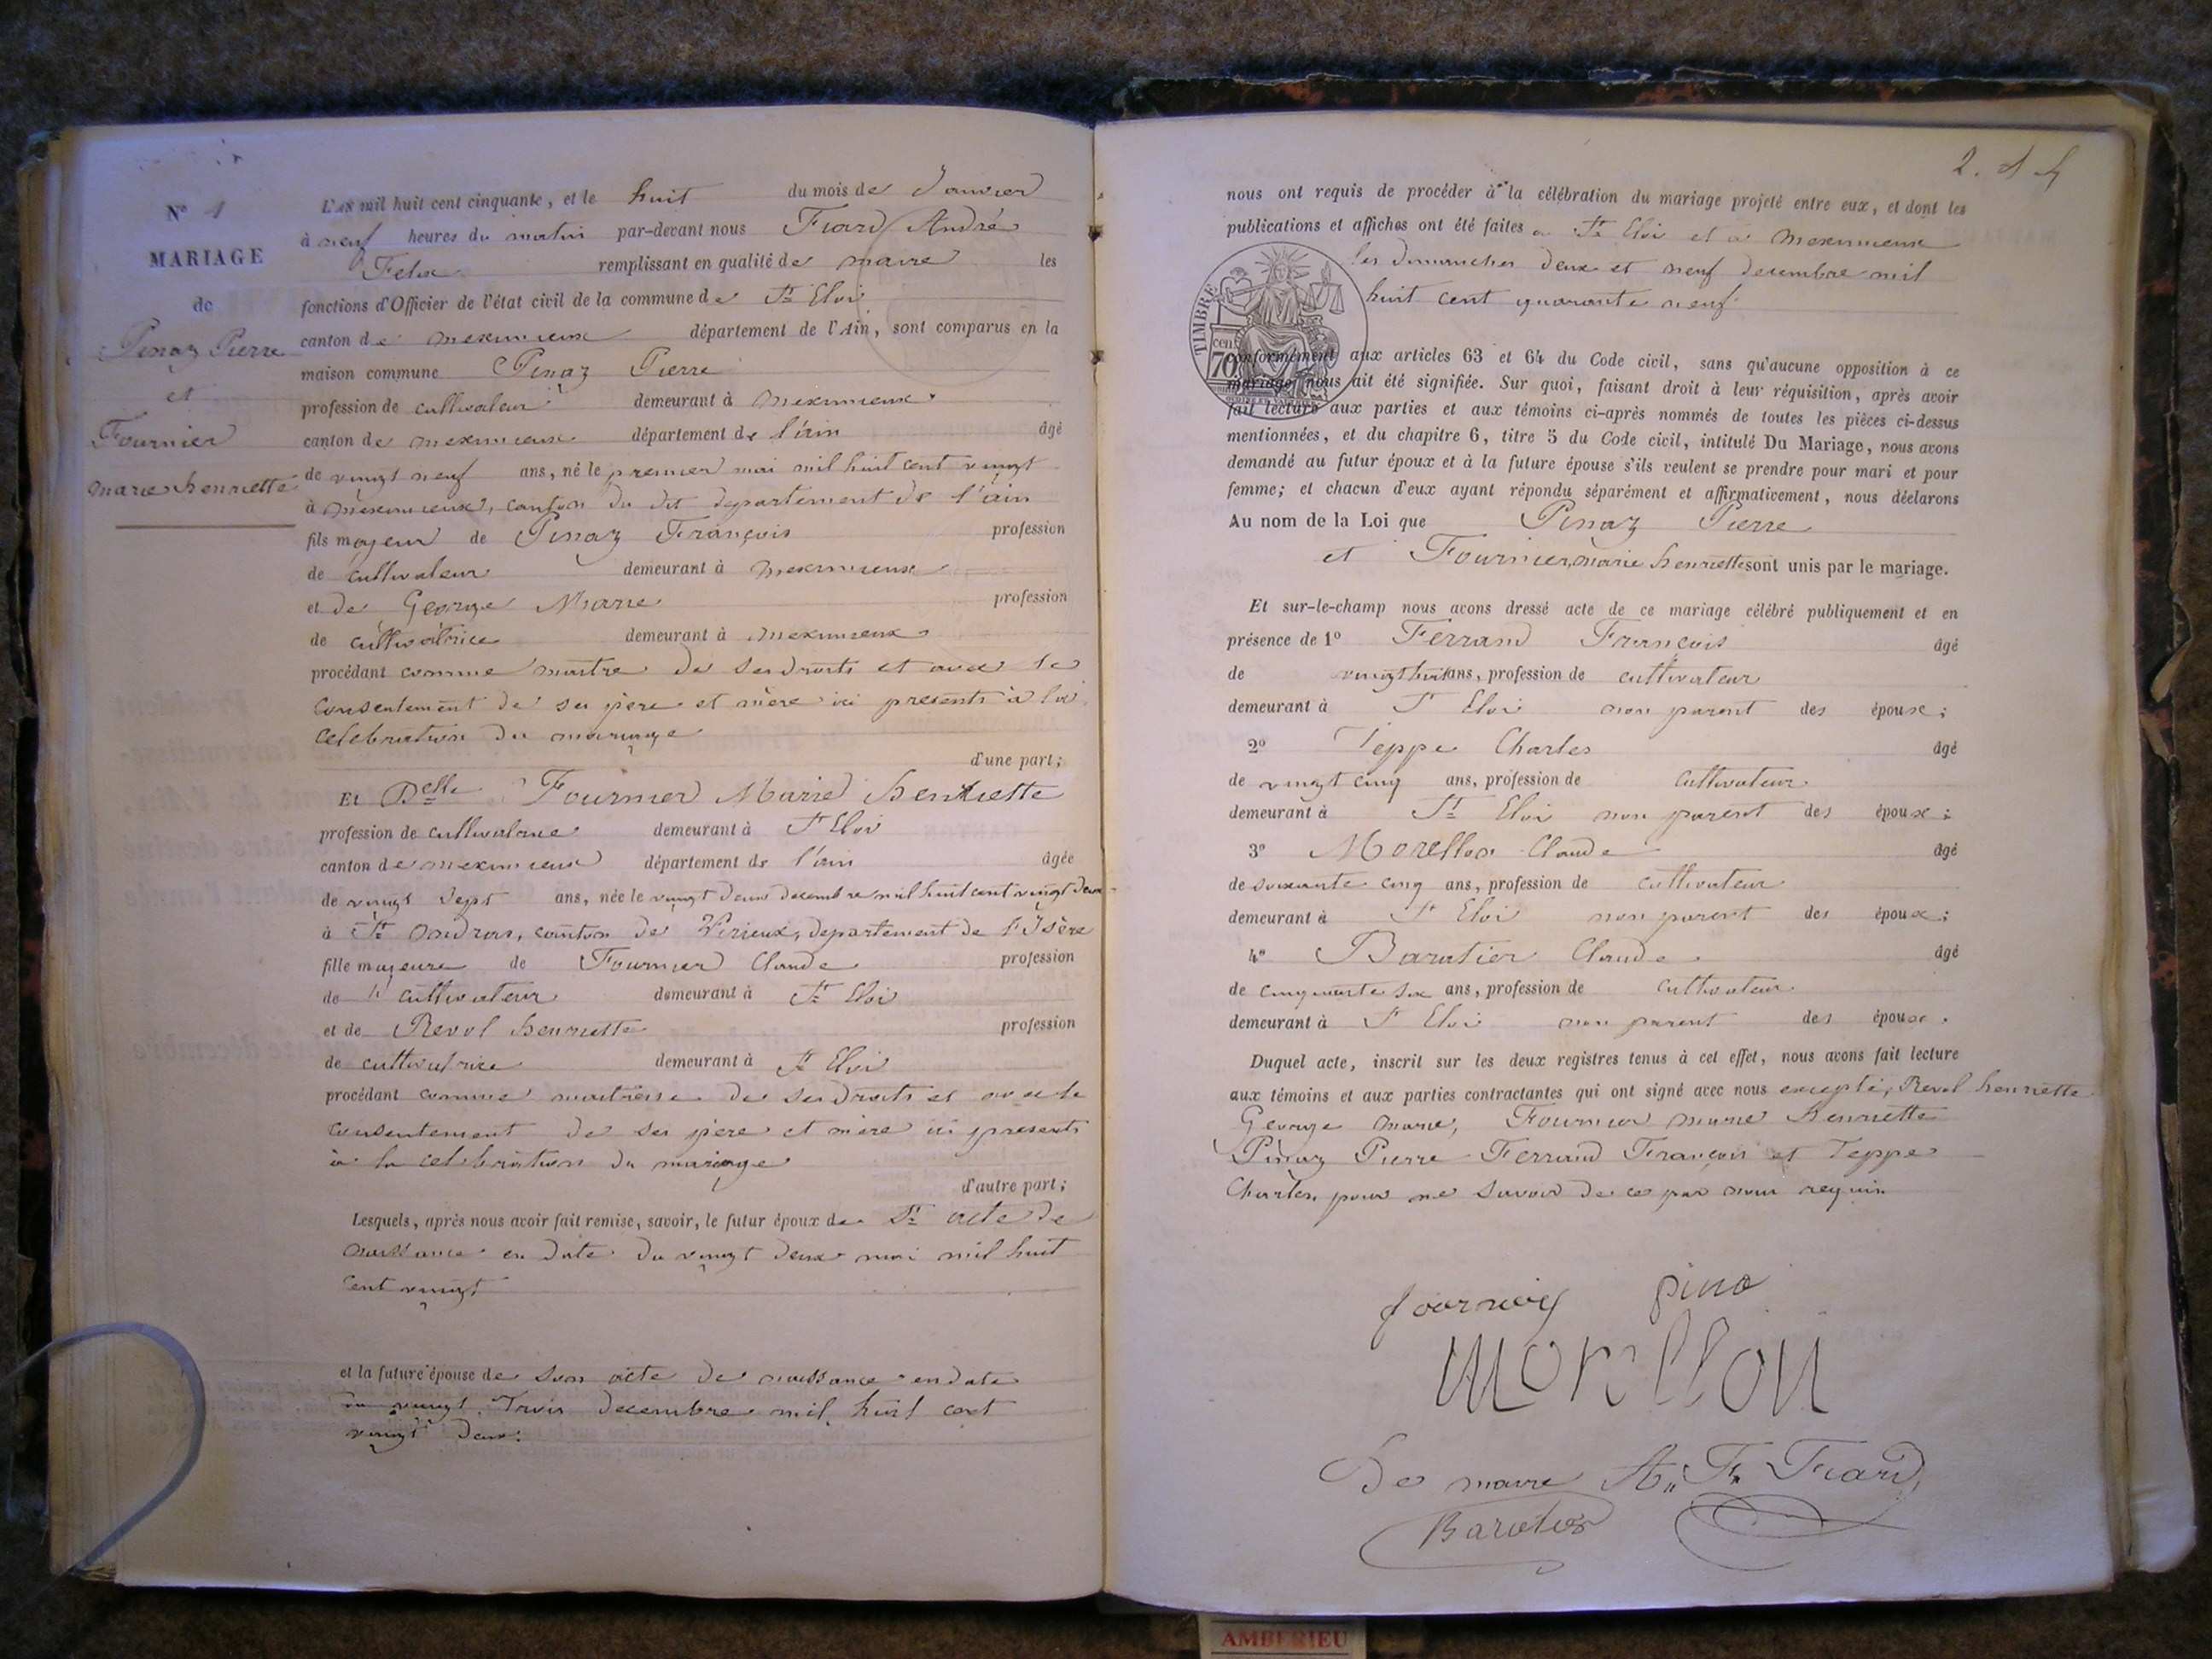 N° 1
MARIAGE
de
Pinaz Pierre
et
Fournier
marie henriette
L'AN mil huit cent cinquante, et le huit du mois de Janvier
à neuf heures du matin par-devant nous Fiard André
Felix remplissant en qualité de maire les
fonctions d'Officier de l'état civil de la commune de St Eloi
canton de meximieux département de l'Ain, sont comparus en la
maison commune Pinaz Pierre
profession de cultivateur demeurant à meximieux
canton de meximieux département de l'ain âgé
de vingt neuf ans, né le premier mai mil huit cent vingt
à meximieux, canton du dit departement de l'ain
fils majeur de Pinaz François profession
de cultivateur demeurant à meximieux
et de George Marie profession
de cultivatrice demeurant à meximieux
procédant comme maitre de ses droits et avec le
consentement de ses père et mère ici presents à la
celebration du mariage
d'une part;
Et Delle Fournier Marie henriette
profession de cultivatrice demeurant à St Eloi
canton de meximieux département de l'ain âgée
de vingt sept ans, née le vingt deux decembre mil huit cent vingt deux
à St ondras, canton de Virieux, departement de l'Isère
fille majeure de Fournier Claude profession
de cultivateur demeurant à St Eloi
et de Revol henriette profession
de cultivatrice demeurant à St Eloi
procédant comme maitresse de ses droits et avec le
consentement de ses père et mère ici presents
à la celebration du mariage
d'autre part;
Lesquels, après nous avoir fait remise, savoir, le futur époux de acte de
naissance en date du vingt deux mai mil huit
cent vingt
et la future épouse de son acte de naissance en date
du vingt Trois decembre mil huit cent
vingt deux.
2.
nous ont requis de procéder à la célébration du mariage projeté entre eux, et dont les
publications et affiches ont été faites a St Eloi et a meximieux
les dimanches deux et neuf decembre mil
huit cent quarante neuf
TIMBRE
70 cent
conformément aux articles 63 et 64 du Code civil, sans qu'aucune opposition à ce
mariage nous ait été signifiée. Sur quoi, faisant droit à leur réquisition, après avoir
fait lecture aux parties et aux témoins ci-après nommés de toutes les pièces ci-dessus
mentionnées, et du chapitre 6, titre 5 du Code civil, intitulé Du Mariage, nous avons
demandé au futur époux et à la future épouse s'ils veulent se prendre pour mari et pour
femme; et chacun d'eux ayant répondu séparément et affirmativement, nous déclarons
Au nom de la Loi que Pinaz Pierre
et Fournier, marie henriette sont unis par le mariage.
Et sur-le-champ nous avons dressé acte de ce mariage célébré publiquement et en
présence de 1° Ferrand François âgé
de vingt huit ans, profession de cultivateur
demeurant à St Eloi non parent des époux;
2° Teppe Charles âgé
de vingt cinq ans, profession de cultivateur
demeurant à St Eloi non parent des époux;
3° Morellon Claude âgé
de soixante cinq ans, profession de cultivateur
demeurant à St Eloi non parent des époux;
4° Baratier Claude âgé
de cinquante six ans, profession de cultivateur
demeurant à St Eloi non parent des époux.
Duquel acte, inscrit sur les deux registres tenus à cet effet, nous avons fait lecture
aux témoins et aux parties contractantes qui ont signé avec nous excepté, Revol henriette
George marie, Fournier marie henriette
Pinaz Pierre Ferrand François et Teppe
Charles pour ne savoir de ce par nous requis
fournier pina
morillon
Le maire A. F. Fiard
Baratier
AMBERIEU